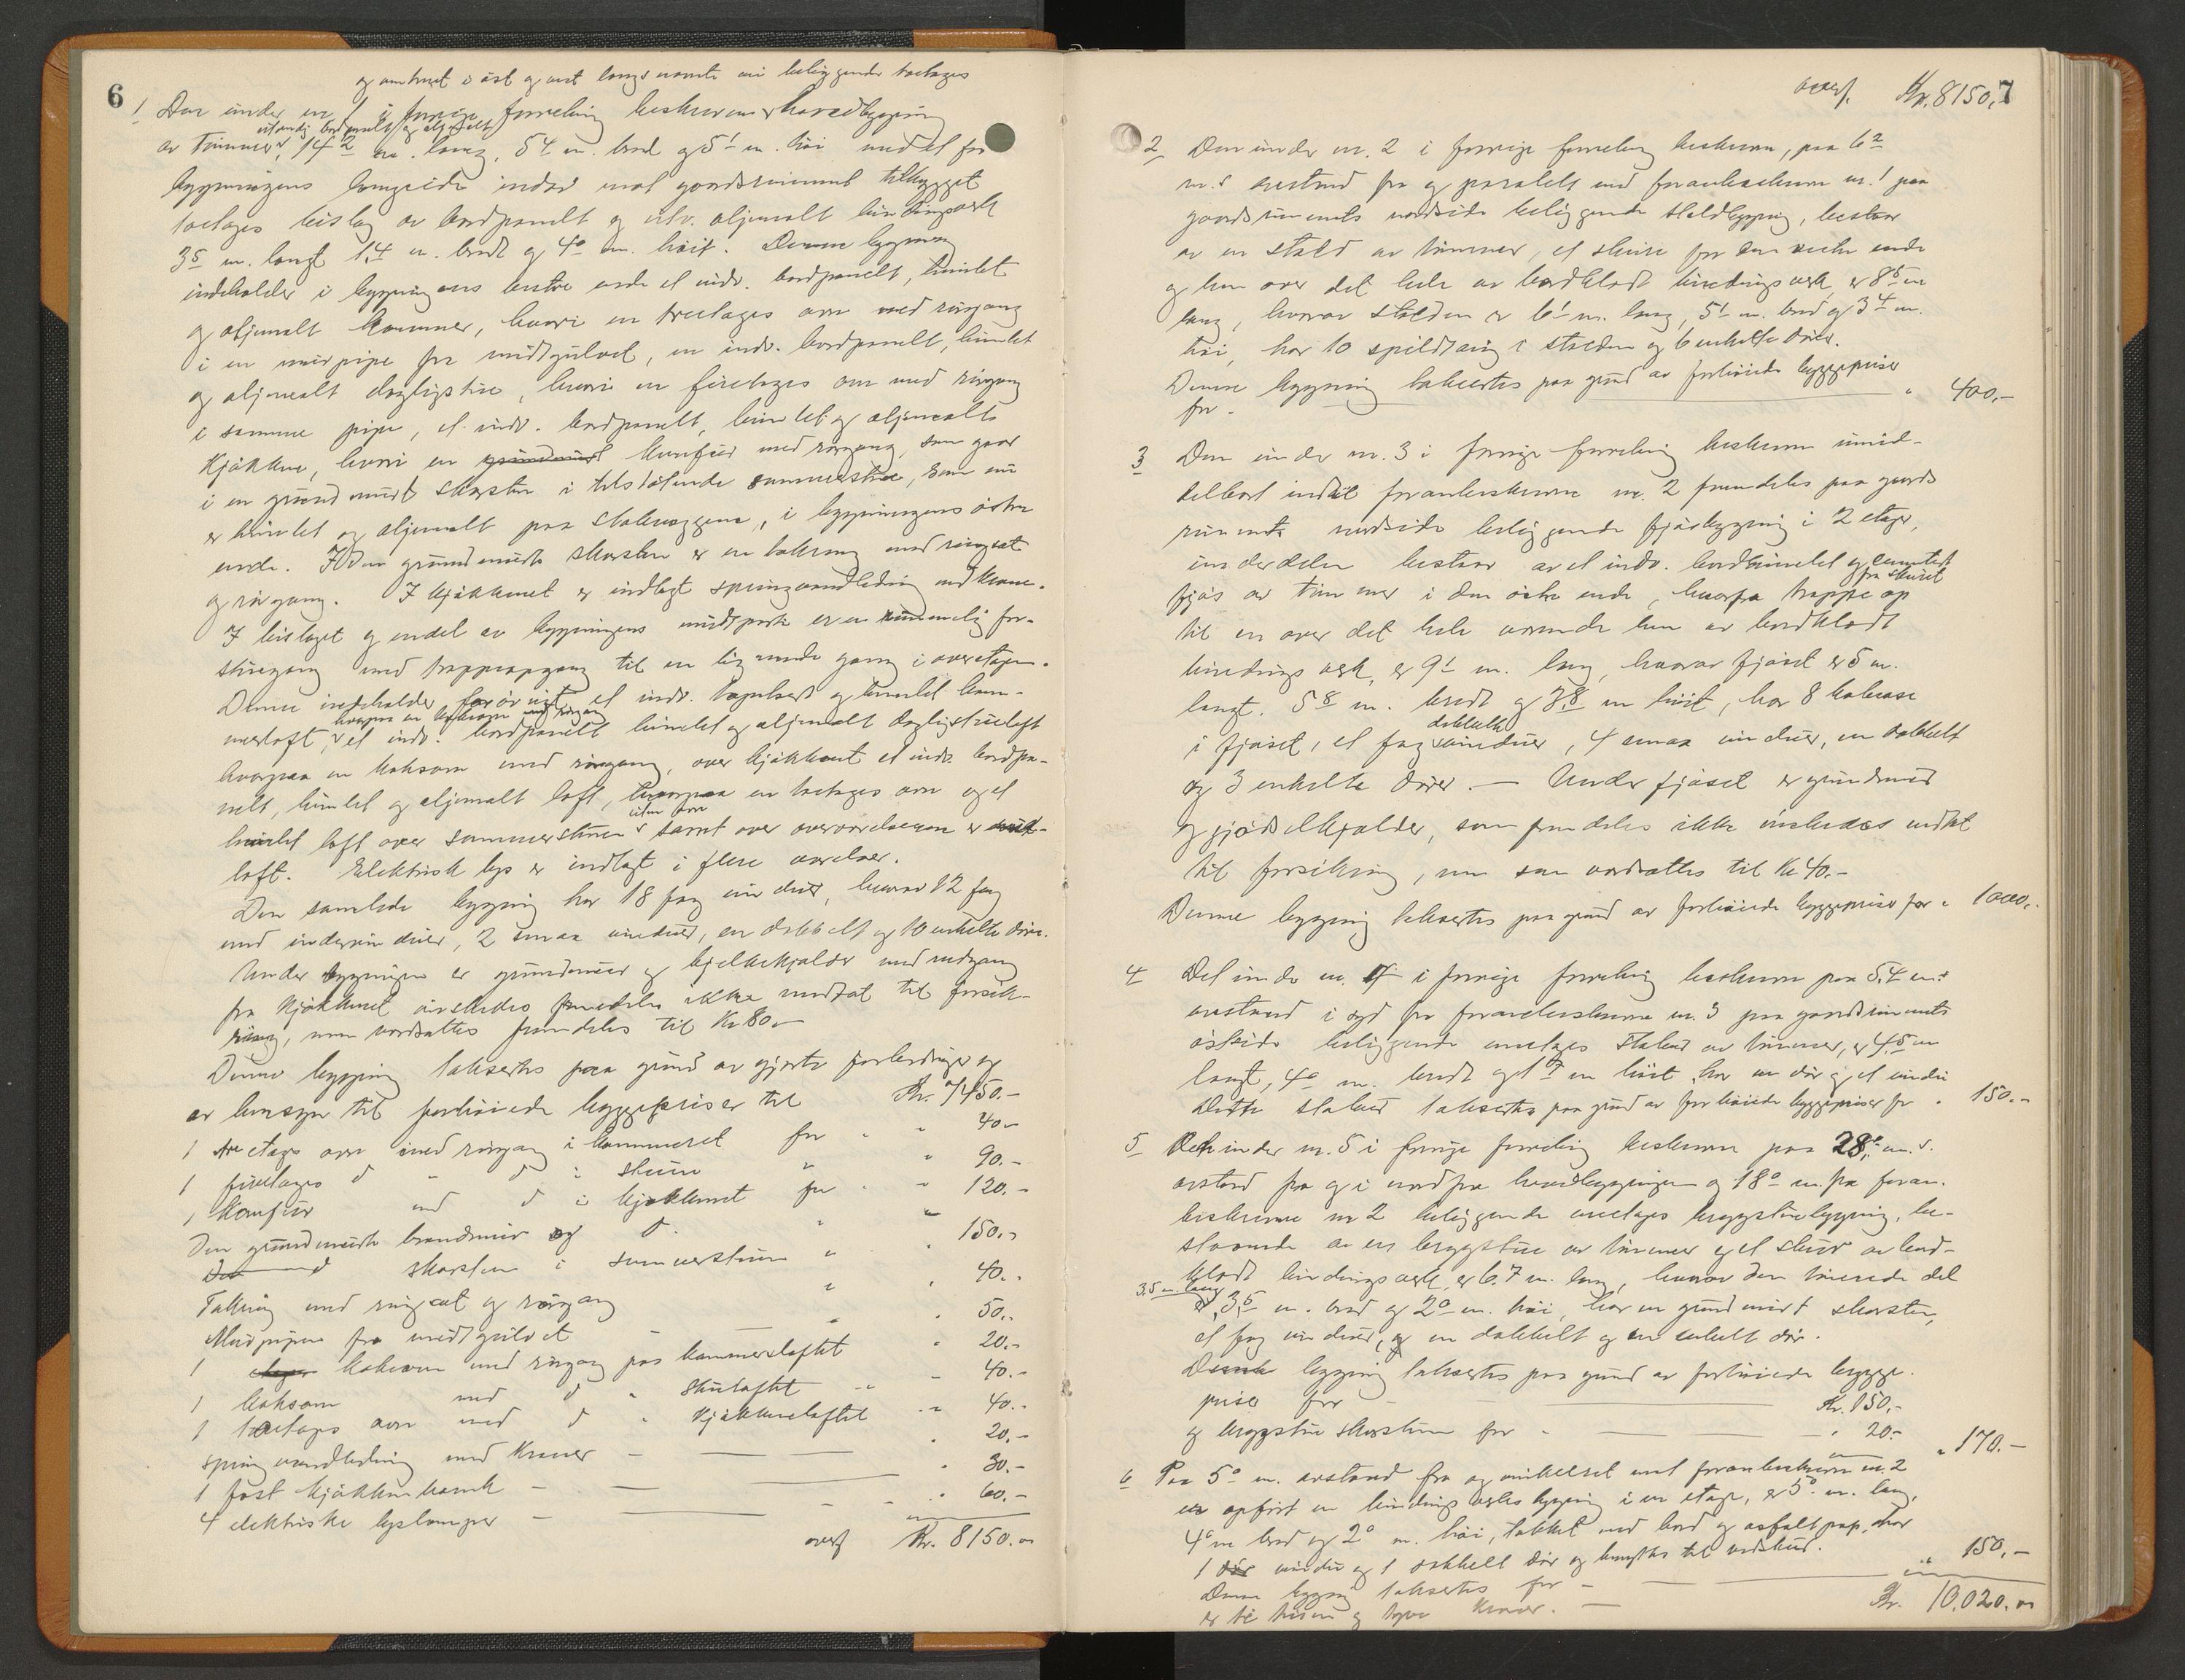 6
og omtrent i øst og vest langs nævnte nu beliggende toetages
1 Den under nr. 1 i forrige forretning beskrevne hovedbygning
utvendig bordpanelt og oljemalt
av tømmer, 14² m. lang, 5⁴ m. bred og 5¹ m. høi med et for
bygningens langside indad mot gaardsrummet tilbygget
toetages bislag av bordpanelt og utv. oljemalt bindingsverk
3⁵ m. langt 1,4 m. bredt og 4⁰ m. høit. Denne bygning
indeholder i bygningens vestre ende et indv. bordpanelt, himlet
og oljemalt kammer, hvori en treetages ovn med rørgang
i en murpipe fra midtgulvet, en indv. bordpanelt, himlet
og oljemalt dagligstue, hvori en fireetages ovn med rørgang
i samme pipe, et indv. bordpanelt, himlet og oljemalt
kjøkken, hvori en grundmurt komfur med rørgang, som gaar
i en grundmurt skorsten i tilstøtende sommerstue, som nu
er himlet og oljemalt paa stokvæggene, i bygningens østre
ende. I den grundmurte skorsten er en takring med ringsat
og rørgang. I kjøkkenet er indlagt springvandledning med kraner.
I bislaget og endel av bygningens midtparti er en rummelig for-
stuegang med trappeopgang til en lignende gang i overetagen.
Denne indeholder forøvrigt et indv. tapetsert og himlet kam-
hvorpaa en koksovn med rørgang
mersloft, et indv. bordpanelt himlet og oljemalt dagligstueloft
hvorpaa en koksovn med rørgang, over kjøkkenet et indv. bordpa-
nelt, himlet og oljemalt loft, hvorpaa en toetages ovn og et
uten ovn
himlet loft over sommerstuen samt over overværelserne er mørk-
loft. Elektrisk lys er indlagt i flere værelser.
Den samlede bygning har 18 fag vinduer, hvorav 12 fag
med indervinduer, 2 smaa vinduer, en dobbelt og 10 enkelte døre.
Under bygningen er grundmur og bjelkekjælder med nedgang
fra kjøkkenet ønskedes fremdeles ikke medtat til forsik-
ring, men værdsattes fremdeles til Kr 80.-
Denne bygning taksertes paa grund av gjorte forbedringer og
av hensyn til forhøiede byggepriser til Kr. 7450.-
1 treetages ovn med rørgang i kammeret for " " 40.-
1 fireetages d " d i stuen " " 90.-
1 Komfur med d i kjøkkenet for " " 120.-
Den grundmurte brandmur og d. " " 150.-
Den d skorsten i sommerstuen " " 40.-
Takring med ringsat og rørgang " " 50.-
Murpipen fra midtgulvet - " 20.-
1 etages koksovn med rørgang paa kammersloftet - 40.-
1 koksovn med d " stueloftet " 40.-
1 toetages ovn med d " kjøkkenloftet " 20.-
springvandledning med kraner - " 30.-
1 fast kjøkkenbænk - " 60.-
4 elektriske lyslamper -
overf Kr. 8150.-
7
overf. Kr. 8150,-
2 Den under nr. 2 i forrige forretning beskrevne, paa 6²
m.s avstand fra og paralelt med foranbeskrevne nr. 1 paa
gaardsrummets nordside beliggende staldbygning, bestaar
av en stald av tømmer, et skur for den vestre ende
og hen over det hele av bordklædt bindingsverk, er 8⁵ m
lang, hvorav stalden er 6¹ m. lang, 5¹ m. bred og 3⁴ m.
høi, har 10 spiltaug i stalden og 6 enkelte døre.
Denne bygning taksertes paa grund av forhøiede byggepriser
for - " 400.-
3 Den under nr. 3 i forrige forretning beskrevne umid-
delbart indtil foranbeskrevne nr. 2 fremdeles paa gaards
rummets nordside beliggende fjøsbygning i 2 etager,
underdelen bestaar av et indv. bordhimlet og cementert
fra skuret
fjøs av tømmer i den østre ende, hvorfra trappe op
til en over det hele værende hen av bordklædt
bindingsverk, er 9¹ m. lang, hvorav fjøset er 5 m.
langt. 5⁸ m. bredt og 3,8 m høit, har 8 kobaase
dobbelte
i fjøset, et fag vinduer, 4 smaa vinduer, en dobbelt
og 3 enkelte døre. — Under fjøset er grundmur
og gjødselkjælder, som fremdeles ikke ønskedes medtat
til forsikring, men som værdsattes til Kr 40.-
Denne bygning taksertes paa grund av forhøiede byggepriser for " 1000.-
4 Det under nr. 4 i forrige forretning beskrevne paa 5.4 m.s
avstand i syd fra foranbeskrevne nr. 3 paa gaardsrummets
østside beliggende enetages stabur av tømmer, er 4,5 m
langt, 4⁰ m. bredt og 1⁷ m høit, har en dør og et vindu
Dette stabur taksertes paa grund av forhøiede byggepriser for " 150.-
5 Den under nr. 5 i forrige forretning beskrevne paa 28,- m.s.
avstand fra og i nord fra hovedbygningen og 18⁰ m. fra foran-
beskrevne nr 2 beliggende enetages bryggstuebygning, be-
staaende av en bryggstue av tømmer og et skur av bord-
klædt bindingsverk, er 6.7 m. lang, hvorav den tømrede del
3,5 m. lang
er 3,5 m. bred og 2⁰ m. høi, har en grundmurt skorsten,
et fag vinduer, og en dobbelt og en enkelt dør.
Denne bygning taksertes paa grund av forhøiede bygge-
priser for - Kr. 150.-
og bryggstueskorstenen for - " 20.-
" 170.-
6 Paa 5⁰ m. avstand fra og vinkelret mot foranbeskrevne nr. 2
er opført en bindingsverks bygning i en etage, er 5⁰ m. lang,
4⁰ m bred og 2⁰ m. høi, tækket med bord og asfaltpap, har
1 dør vindu og 1 dobbelt dør og benyttes til vedskur.
Denne bygning taksertes for - " 150.-
er ti tusen og tyve kroner. - Kr. 10.020.-